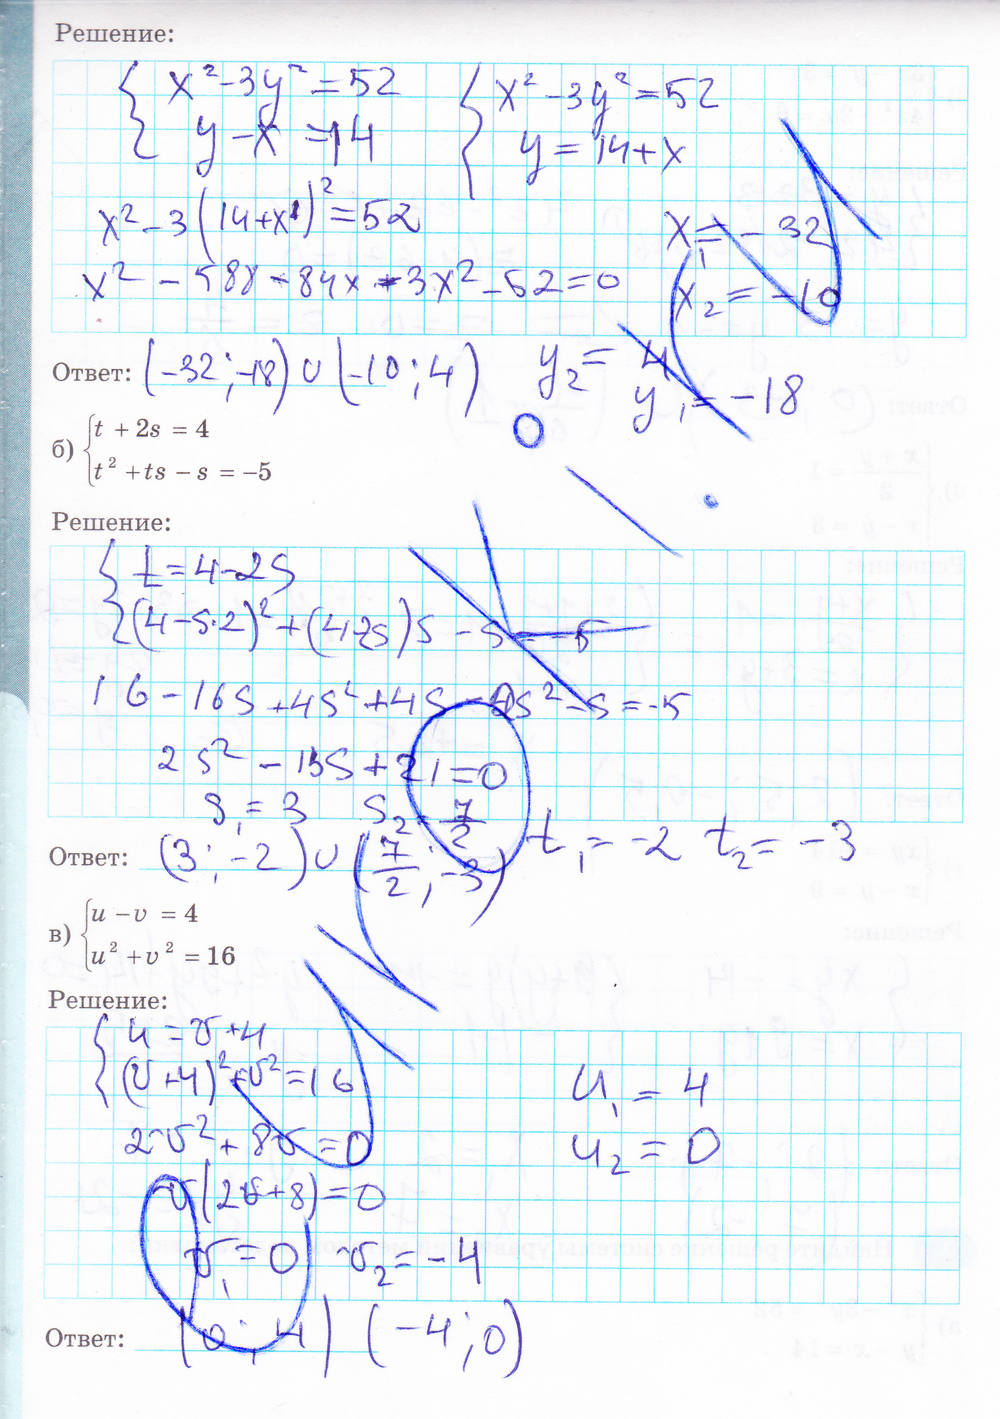 Решение:
{ x² - 3y² = 52 { x² - 3y² = 52
y - x = 14 y = 14 + x
x² - 3(14+x)² = 52 x₁ = -32
x² - 588 - 84x - 3x² - 52 = 0 x₂ = -10
Ответ: (-32; -18) ∪ (-10; 4) y₂ = 4
y₁ = -18
б) { t + 2s = 4
t² + ts - s = -5
Решение:
{ t = 4 - 2s
(4 - s·2)² + (4-2s)s - s = -5
16 - 16s + 4s² + 4s - 2s² - s = -5
2s² - 13s + 21 = 0
s₁ = 3 s₂ = 7/2 t₁ = -2 t₂ = -3
Ответ: (3; -2) ∪ (7/2; -3)
в) { u - v = 4
u² + v² = 16
Решение:
{ u = v + 4
(v+4)² + v² = 16 u₁ = 4
2v² + 8v = 0 u₂ = 0
v(2v+8) = 0
v₁ = 0 v₂ = -4
Ответ: (0; 4) (-4; 0)